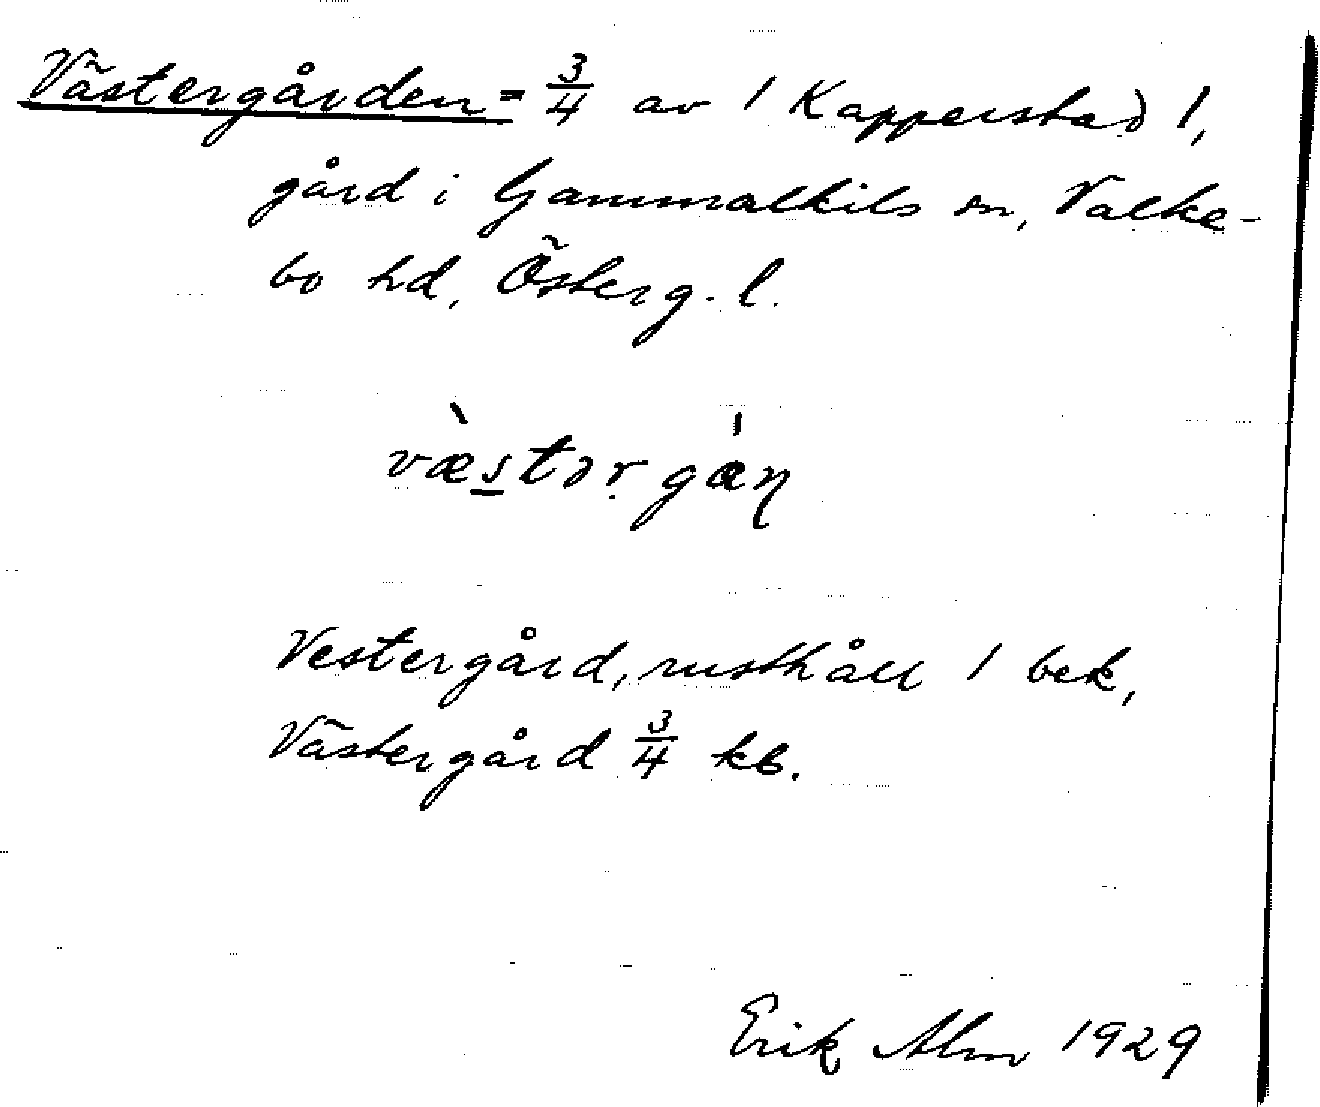 Västergården = 3/4 av 1 Kapperstad 1,
gård i Gammalkils sn, Valke-
bo hd, Österg. l.
væ̀stərgá̇ɳ
Vestergård, rusthåll 1 bek,
Västergård 3/4 kb.
Erik Alm 1929